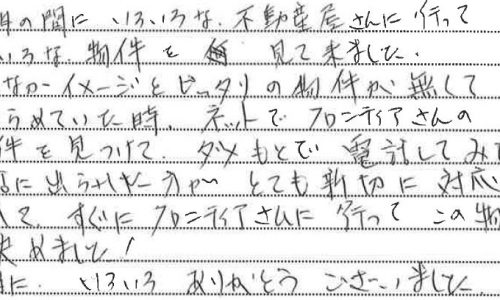 の間に いろいろな 不動産屋さんに行って
いろな 物件を 見て来ました.
なかイメージとピッタリの物件が無くて
らめていた時、ネットで フロンティアさんの
件を見つけて、ダメもとで 電話してみ
に出られた方が とても新切に対応
して、すぐに フロンティアさんに 行って この物
決めました!
に、いろいろ ありがとう ございました.